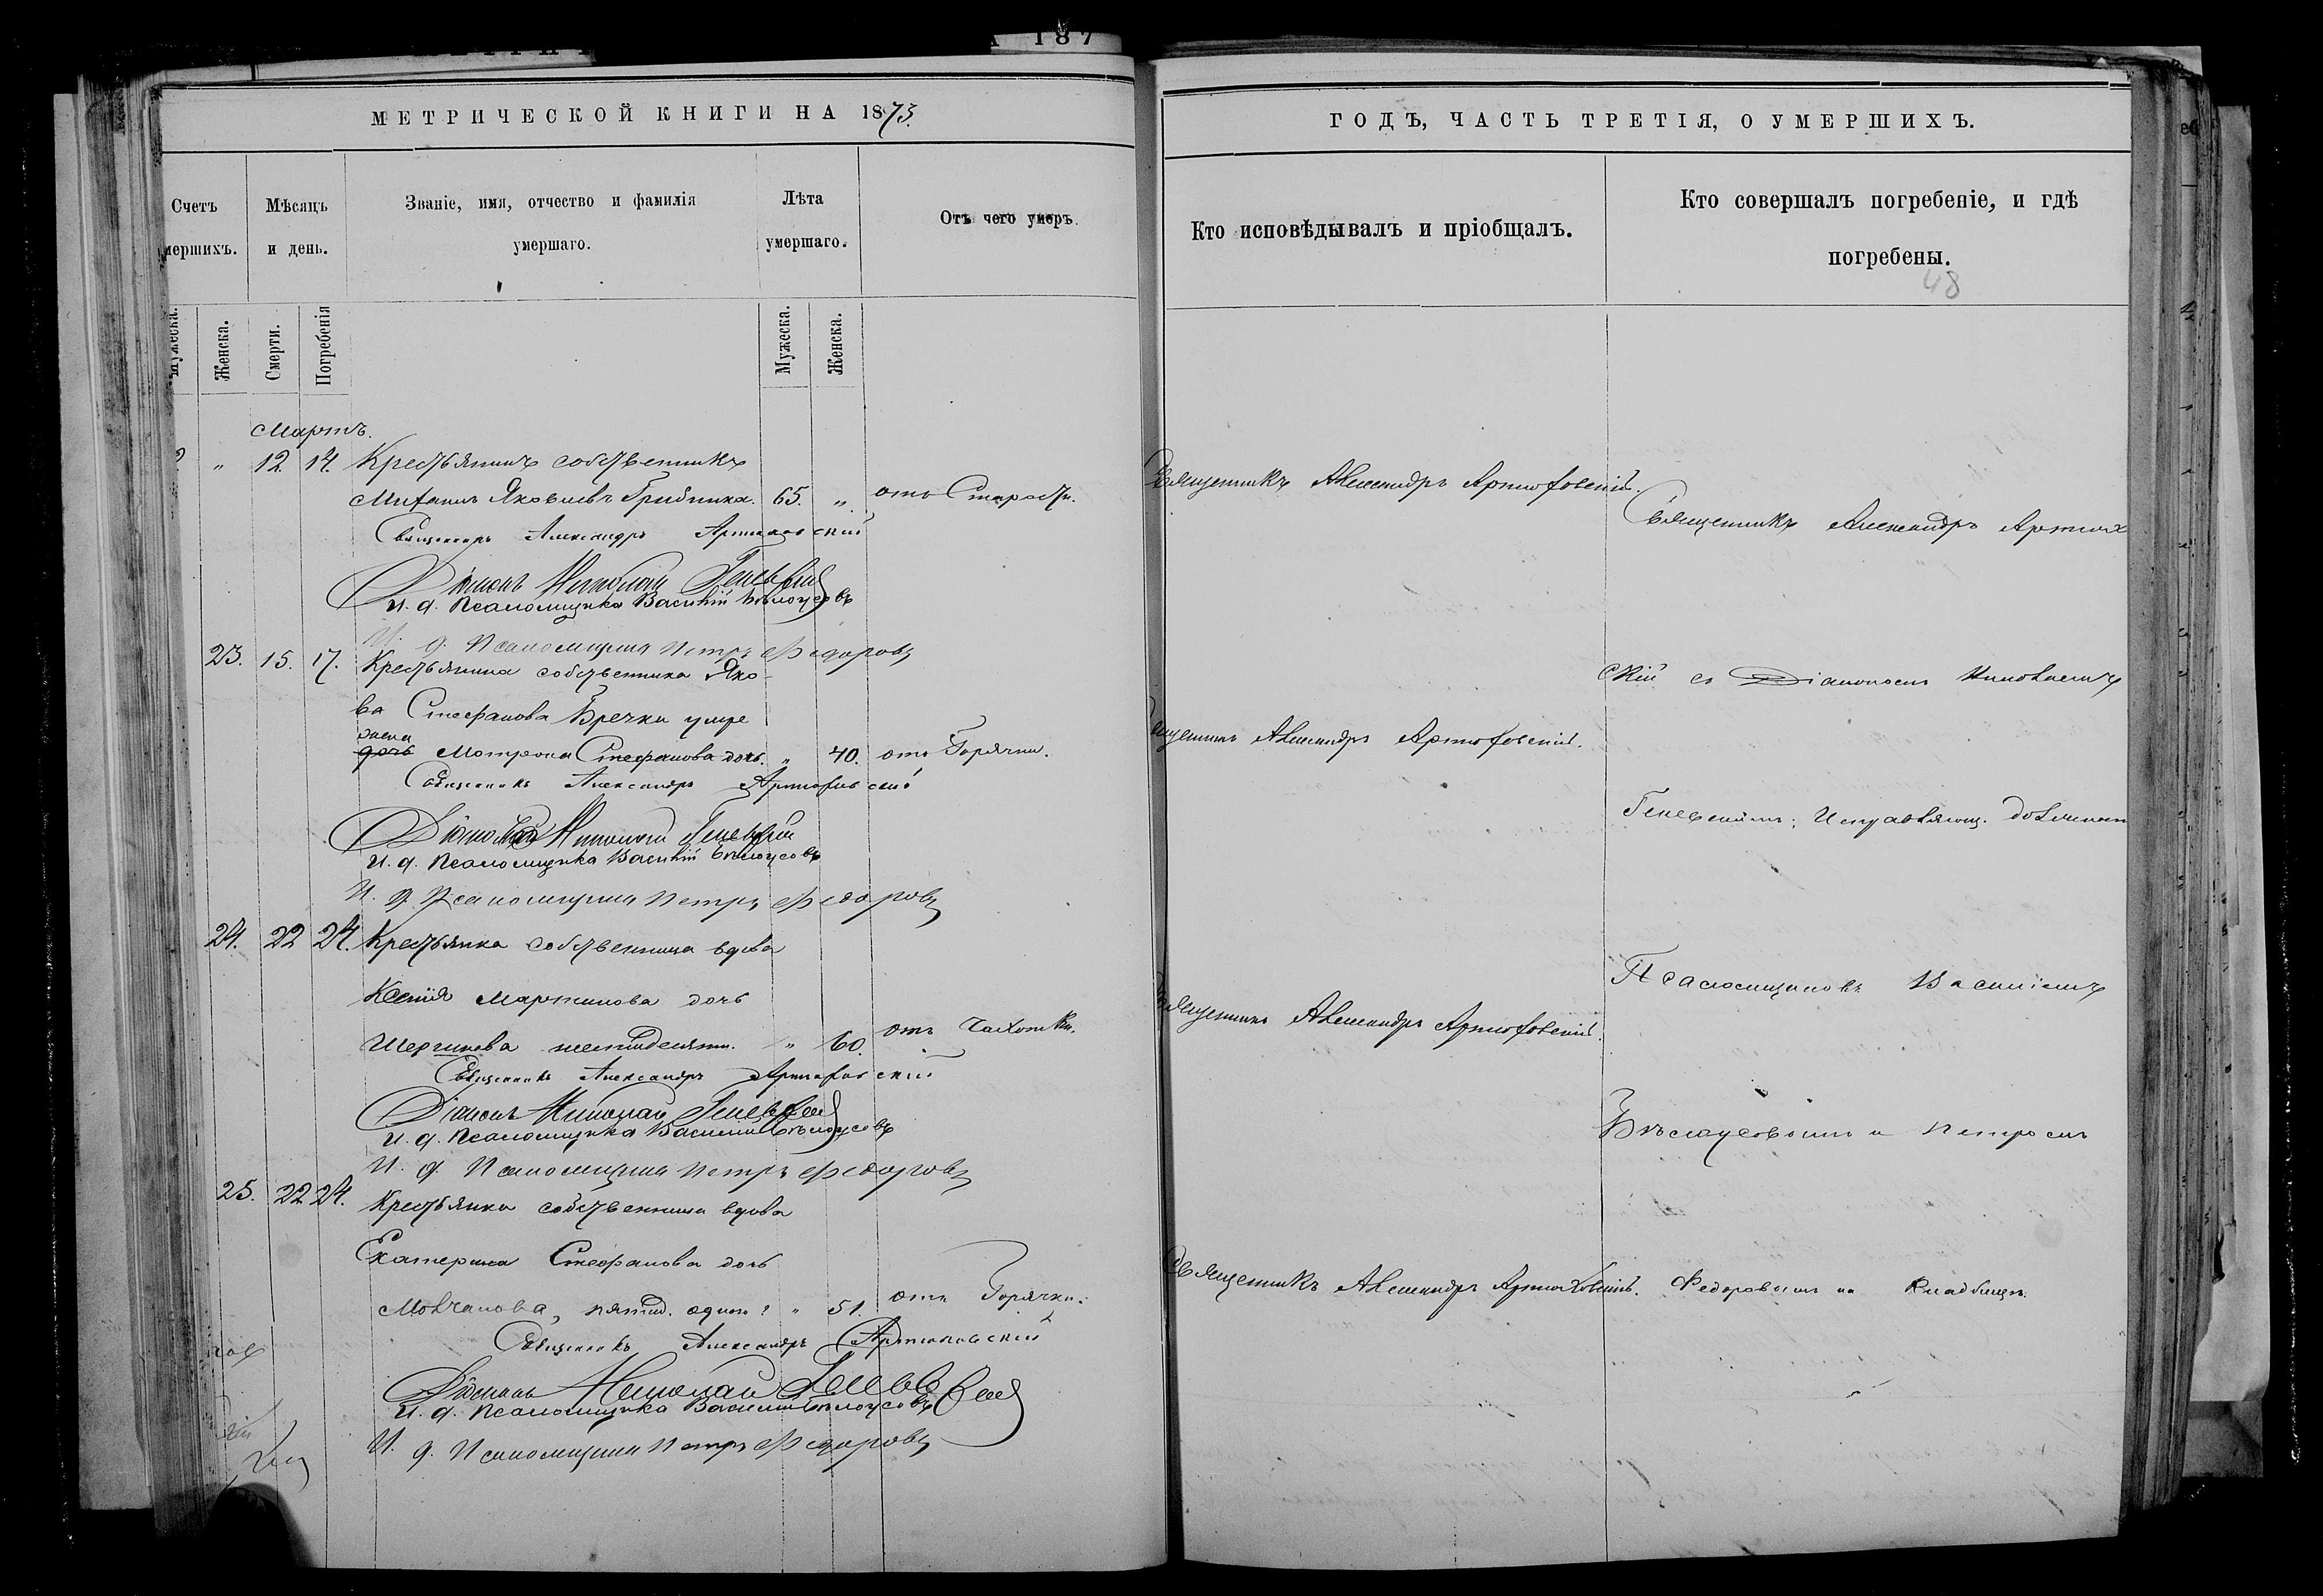 МЕТРИЧЕСКОЙ КНИГИ НА 1873.
Счетъ
мершихъ.
Мѣсяцъ
и день.
Званіе, имя, отчество и фамилія
умершаго.
Лѣта
умершаго.
Отъ чего умеръ.
Мужеска.
Женска.
Смерти.
Погребенія
Мужеска.
Женска.
Мартъ.
" 12 14. Крестьянинъ собственникъ
Михаилъ Яковлевъ Грибинка. 65. " отъ Старости.
Священникъ Александръ Артюховскій
Діаконъ Николай Геневскій
И. д. Псаломщика Василій Бѣлоусовъ
И. д. Псаломщика Петръ Федоровъ
23. 15. 17. Крестьянина собственника Яко-
ва Стефанова Бречки умре
жена
дочь Мотрона Стефанова дочь. " 40. отъ Горячки.
Священникъ Александръ Артюховскій
Діаконъ Николай Геневскій
И. д. Псаломщика Василій Бѣлоусовъ
И. д. Псаломщика Петръ Федоровъ
24. 22 24. Крестьянка собственница вдова
Ксенія Мартинова дочь
Шергинева шестидесяти. " 60. отъ Чахотки.
Священникъ Александръ Артюховскій
Діаконъ Николай Геневскій
И. д. Псаломщика Василій Бѣлоусовъ
И. д. Псаломщика Петръ Федоровъ
25. 22 24. Крестьянка собственница вдова
Екатерина Стефанова дочь
Молчанова, пятид. одного " 51. отъ Горячки.
Священникъ Александръ Артюховскій
Діаконъ Николай Геневскій
И. д. Псаломщика Василій Бѣлоусовъ
И. д. Псаломщика Петръ Федоровъ
ГОДЪ, ЧАСТЬ ТРЕТІЯ, О УМЕРШИХЪ.
Кто исповѣдывалъ и пріобщалъ.
Кто совершалъ погребеніе, и гдѣ
погребены.
48
Священникъ Александръ Артюховскій.
Священникъ Александръ Артюховскій.
Священникъ Александръ Артюховскій.
Священникъ Александръ Артюховскій.
Священникъ Александръ Артюх
скій съ Діакономъ Николаемъ
Геневскимъ; Исправляющ. должност
Псаломщиковъ Василіемъ
Бѣлоусовымъ и Петромъ
Федоровымъ на Кладбищѣ.